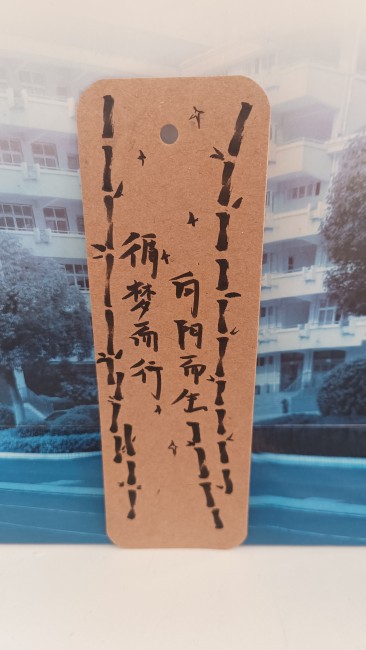 循梦而行,
向阳而生